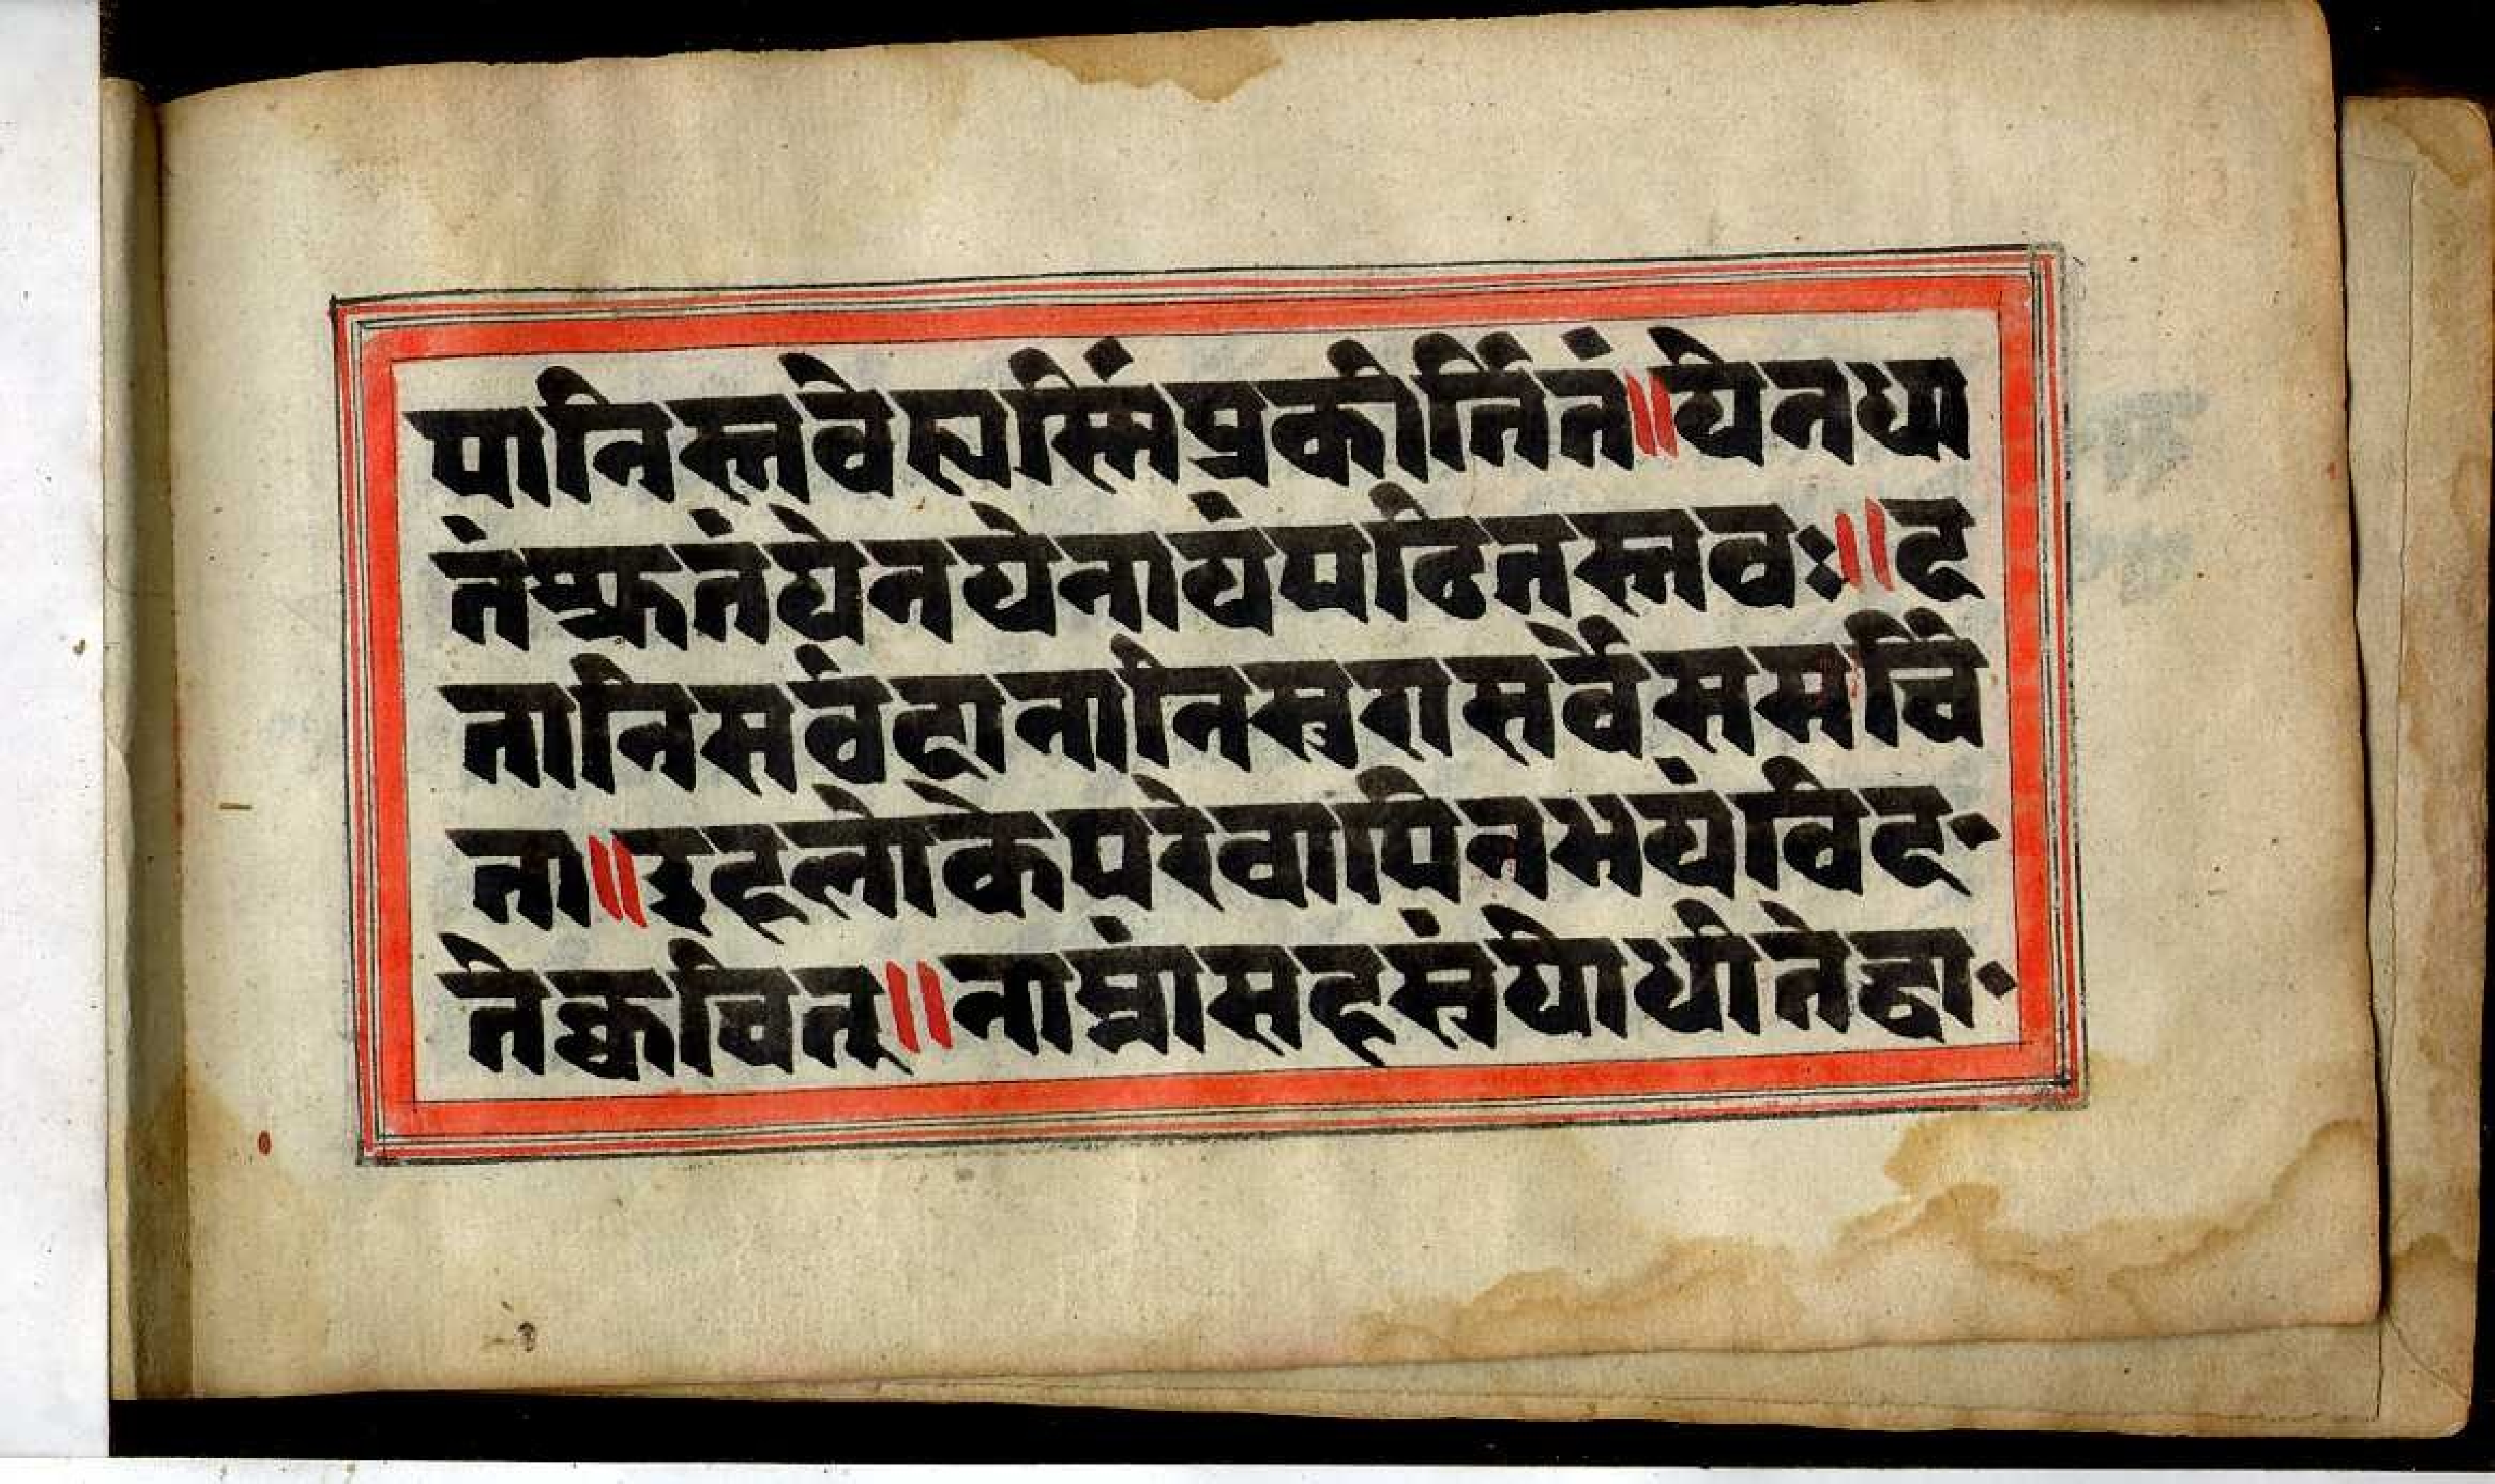 पानिस्तवेह्यस्मिंप्रकीर्तितं॥येनध्या
तंश्रुतंयेनयेनायंपठितस्तवः॥द
त्तानिसर्वदानानिसुराःसर्वेसमर्चि
ता॥इहलोकेपरेवापिनभयंविद्य
तेक्वचित्॥नाम्नांसहस्रंयोधीतेद्वा